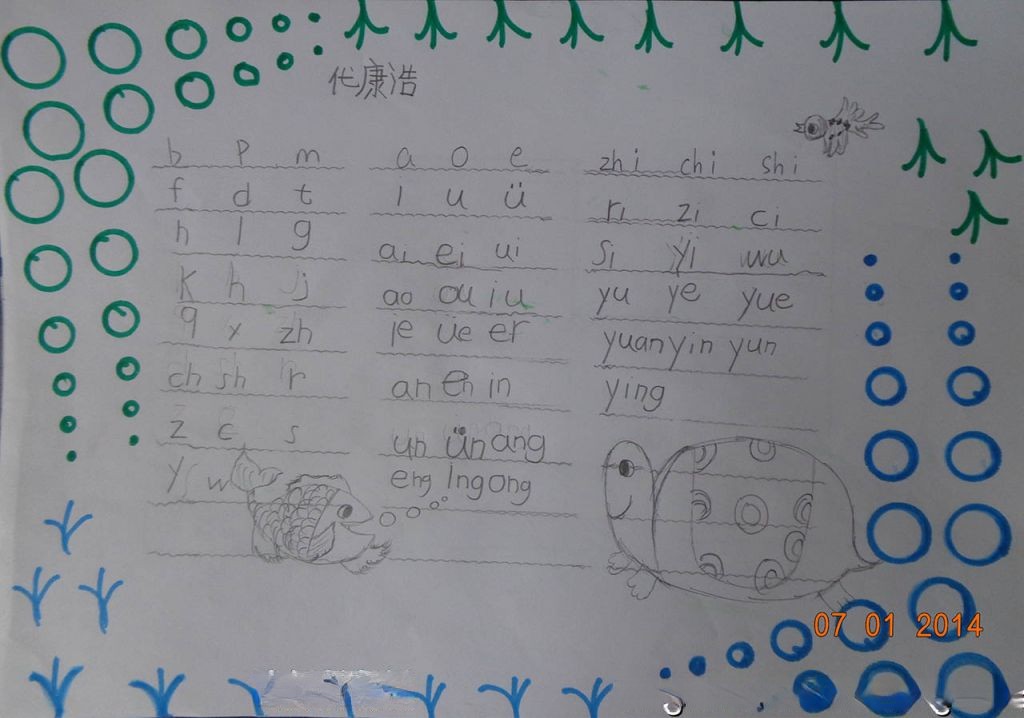 代康浩
b p m
f d t
n l g
k h j
q x zh
ch sh r
z c s
y w
a o e
i u ü
ai ei ui
ao ou iu
ie üe er
an en in
un ün ang
eng ing ong
zhi chi shi
ri zi ci
si yi wu
yu ye yue
yuan yin yun
ying
07 01 2014